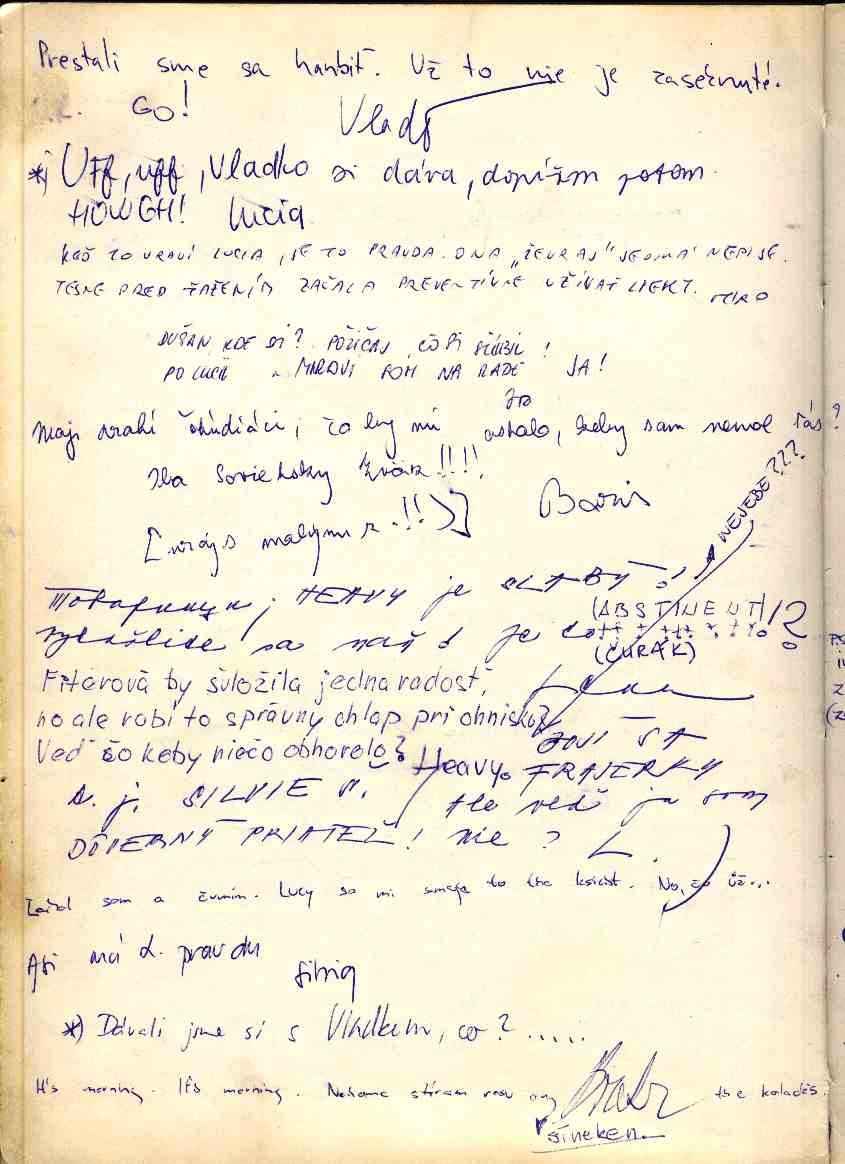 Prestali sme sa hanbiť. Už to nie je zasérnuté.
GO! Vlado
*) Uff, uff, Vladko si dáva, dopíšem potom.
HOWGH! Lucia
KEĎ TO VRAVÍ LUCIA, JE TO PRAVDA. ONA „ŽEVRAJ" JEDINÁ NEPIJE.
TESNE PRED ŤAŽENÍM ZAČALA PREVENTÍVNE UŽÍVAŤ LIEKY. MIRO
DUŠAN, KDE SI? POŽIČAJ, ČO SI SĽÚBIL!
PO LUCII A MIROVI SOM NA RADE JA!
Moji drahí čhúdiáci, čo by mi
ostalo, keby sam nemal Vás?
Iba Sovietsky Zväz!!!!
Boris
[vraj s malým z.!!>]
HEAVY je SLABÝ!
NEJEBE???
vykašlite sa naň
je
(ABSTINENT)!?
(ČURÁK)
Fitérová by švložila jedna radosť,
no ale robí to správny chlap pri ohnisku?
Veď čo keby niečo obhorelo? Heavy.
BOJÍ SA
FRAJERKY
t. j. SILVIE M. Ale veď ja som
DÔVERNÝ PRIATEĽ! nie? L.
som a čumím. Lucy sa mi smeje to the ksicht. No, čo už...
Asi má L. pravdu
Silvia
*) Dávali jsme si s Vladkem, co? .....
It's morning. It's morning. Neheme stíram rosu on the koladės.
síneken.